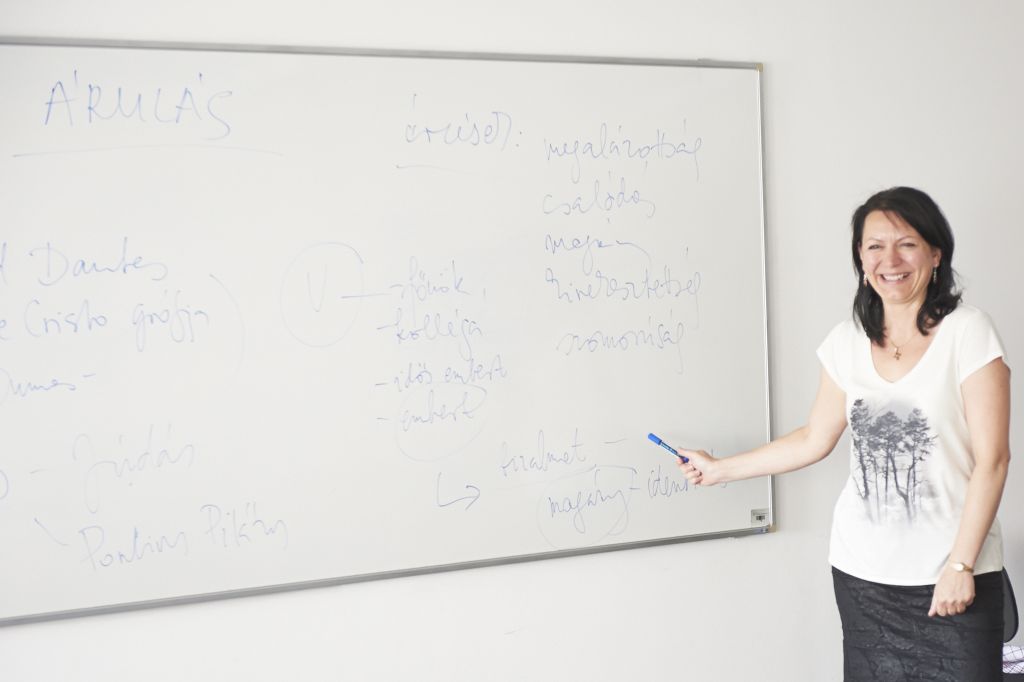 ÁRULÁS
érzések:
megalázottság
csalódás
magány
kirekesztettség
szomorúság
Dantes
Cristo grófja
Dumas-
V
-főnök,
-kolléga
-idős embert
-embert
- Júdás
Pontius Pilátus
bizalmat -
magány-